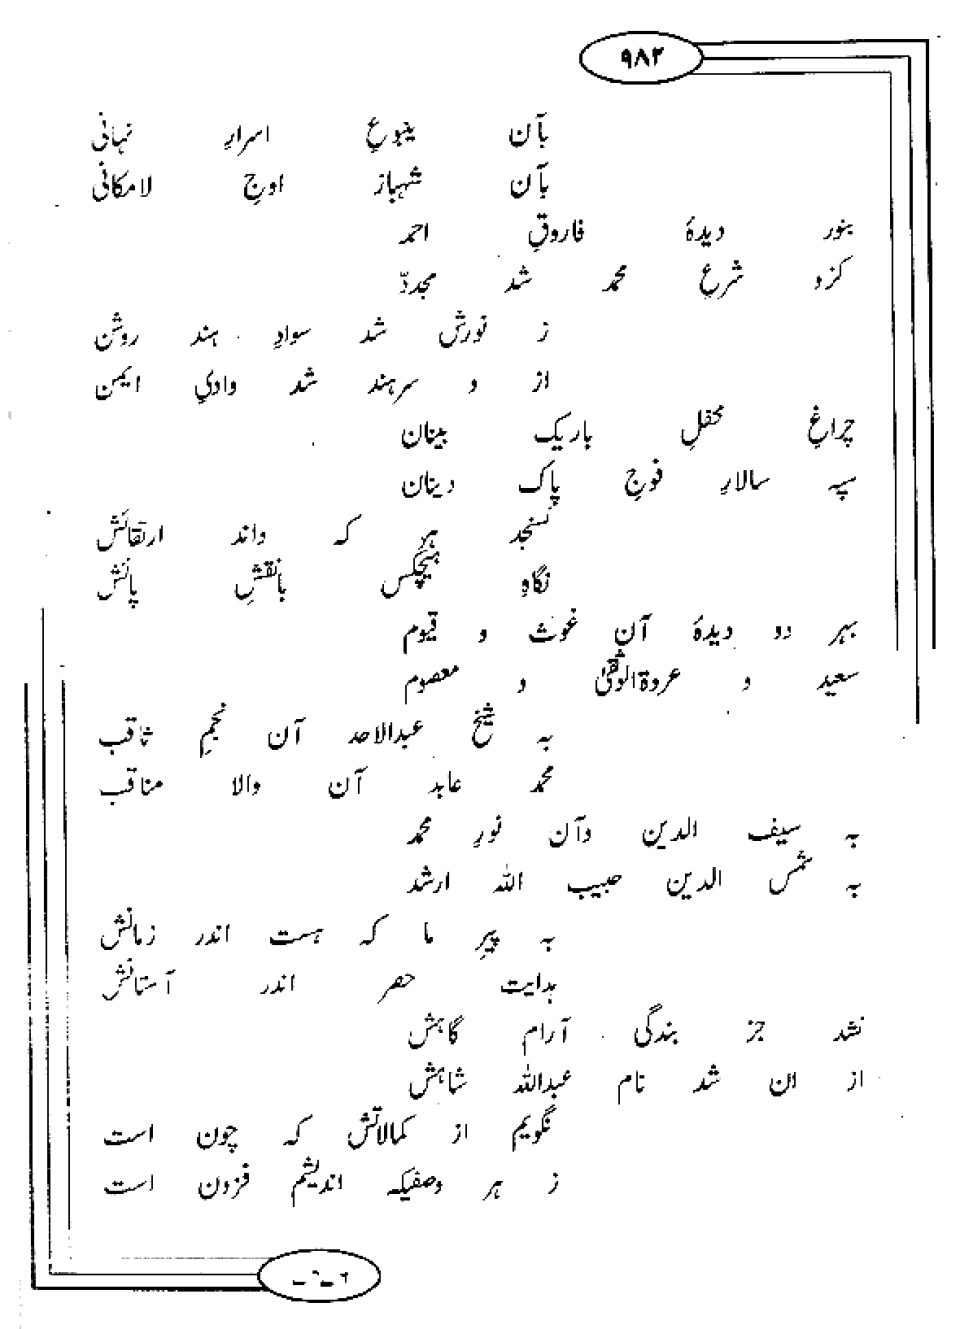 ۹۸۲
بآن ینبوعِ اسرارِ نہانی
بآن شہبازِ اوجِ لامکانی
بنور دیدۂ فاروقِ احمد
کزو شرعِ محمد شد مجددّ
ز نورش شد سوادِ ہند روشن
از و سرہند شد وادیِ ایمن
چراغِ محفلِ باریک بینان
سپہ سالارِ فوجِ پاک دینان
نسنجد ہر کہ واند ارتقائش
نگاہِ ہیچکس بانقشِ پائش
بہر دو دیدۂ آن غوث و قیوم
سعید و عروۃالوثقیٰ و معصوم
بہ شیخ عبدالاحد آن نجمِ ثاقب
محمد عابد آن والا مناقب
بہ سیف الدین وآن نورِ محمد
بہ شمس الدین حبیب اللہ ارشد
بہ پیرِ ما کہ ہست اندر زمانش
ہدایت حصر اندر آستانش
نشد جز بندگی آرام گاہش
از ان شد نام عبداللہ شاہش
نگویم از کمالاتش کہ چون است
ز ہر وصفیکہ اندیشم فزون است